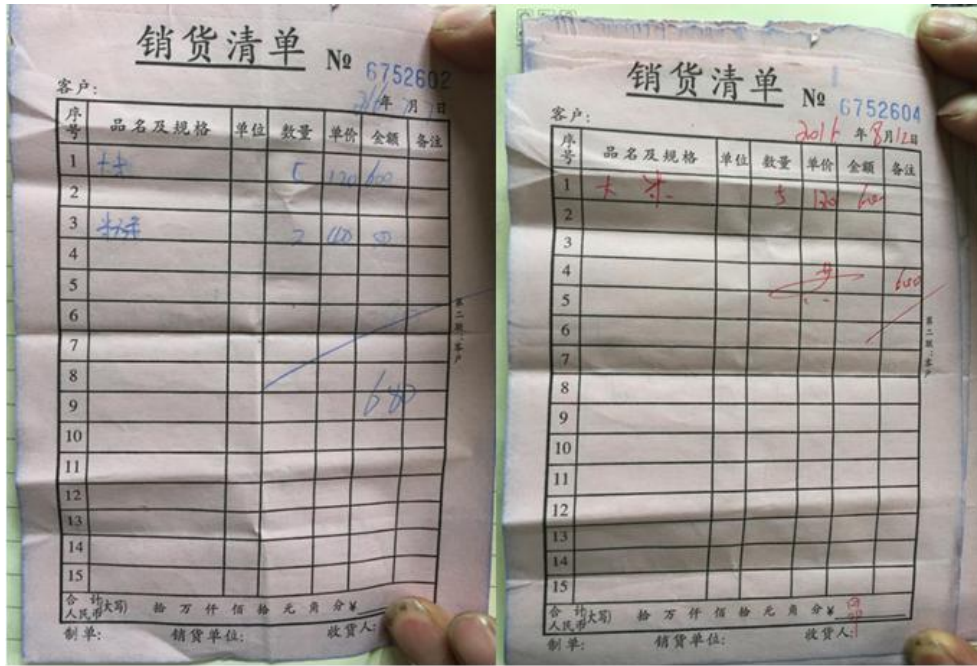 销货清单
№ 6752602
客户:
年 月 日
序号 品名及规格 单位 数量 单价 金额 备注
1 大米 5 120 600
2
3
4
5
6
7
8
9 680
10
11
12
13
14
15
合计人民币(大写) 拾 万 仟 佰 拾 元 角 分 ¥
制单: 销货单位: 收货人:
第二联:客户
销货清单
№ 6752604
客户:
2016 年 8 月 12 日
序号 品名及规格 单位 数量 单价 金额 备注
1 大米 5 120 600
2
3
4 共 600
5
6
7
8
9
10
11
12
13
14
15
合计人民币(大写) 拾 万 仟 佰 拾 元 角 分 ¥
制单: 销货单位: 收货人:
第二联:客户